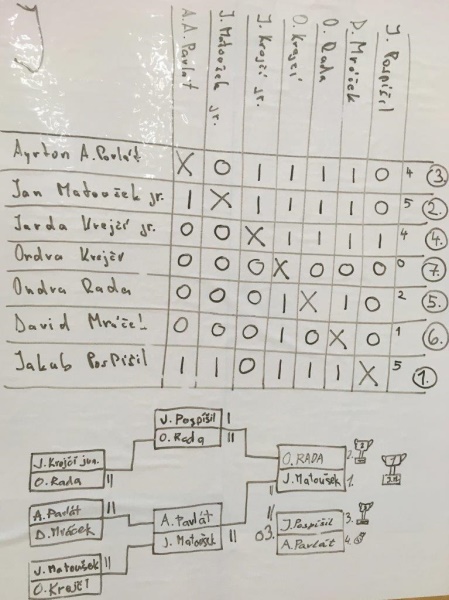 A. A. Pavlát
J. Matoušek jr.
J. Krejčí jr.
O. Krejčí
O. Rada
D. Mráček
J. Pospíšil
Ayrton A. Pavlát X 0 1 1 1 1 0 4 3.
Jan Matoušek jr. 1 X 1 1 1 1 0 5 2.
Jarda Krejčí jr. 0 0 X 1 1 1 1 4 4.
Ondra Krejčí 0 0 0 X 0 0 0 0 7.
Ondra Rada 0 0 0 1 X 1 0 2 5.
David Mráček 0 0 0 1 0 X 0 1 6.
Jakub Pospíšil 1 1 0 1 1 1 X 5 1.
J. Pospíšil I
O. Rada II
J. Krejčí jun.
O. Rada II
O. RADA 2.
J. Matoušek 1.
A. Pavlát II
D. Mráček
A. Pavlát
J. Matoušek II
J. Matoušek II
O. Krejčí
O 3.
J. Pospíšil 3.
A. Pavlát 4.